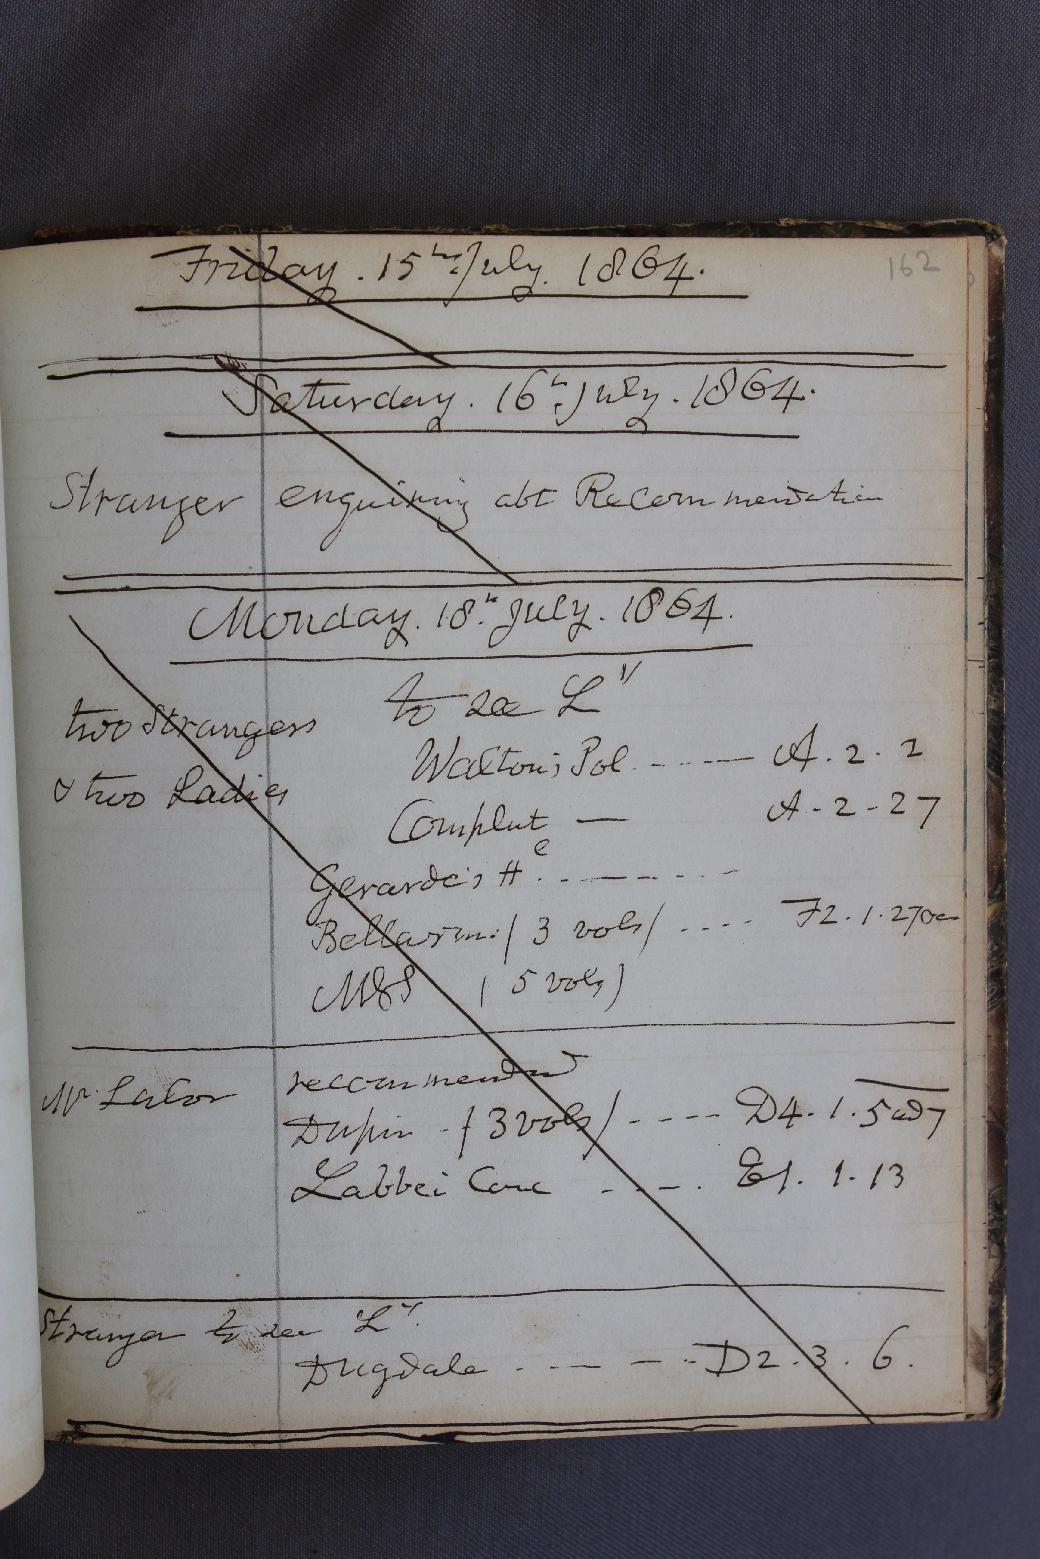 162
Friday. 15th July. 1864.
Saturday. 16th July. 1864.
Stranger enquiring abt Recommendation
Monday. 18th July. 1864.
two Strangers to see Ly
& two Ladies Walton's Pol. A. 2. 2
Complut A-2-27
Gerarde's He
Bellarm: (3 vols) F2. 1. 27
MSS (5 vols)
Mr Lalor recommended
Dupin (3 vols) D4. 1. 5 ad 7
Labbei Conc E1. 1. 13
Stranger to see Ly.
Dugdale D2. 3. 6.